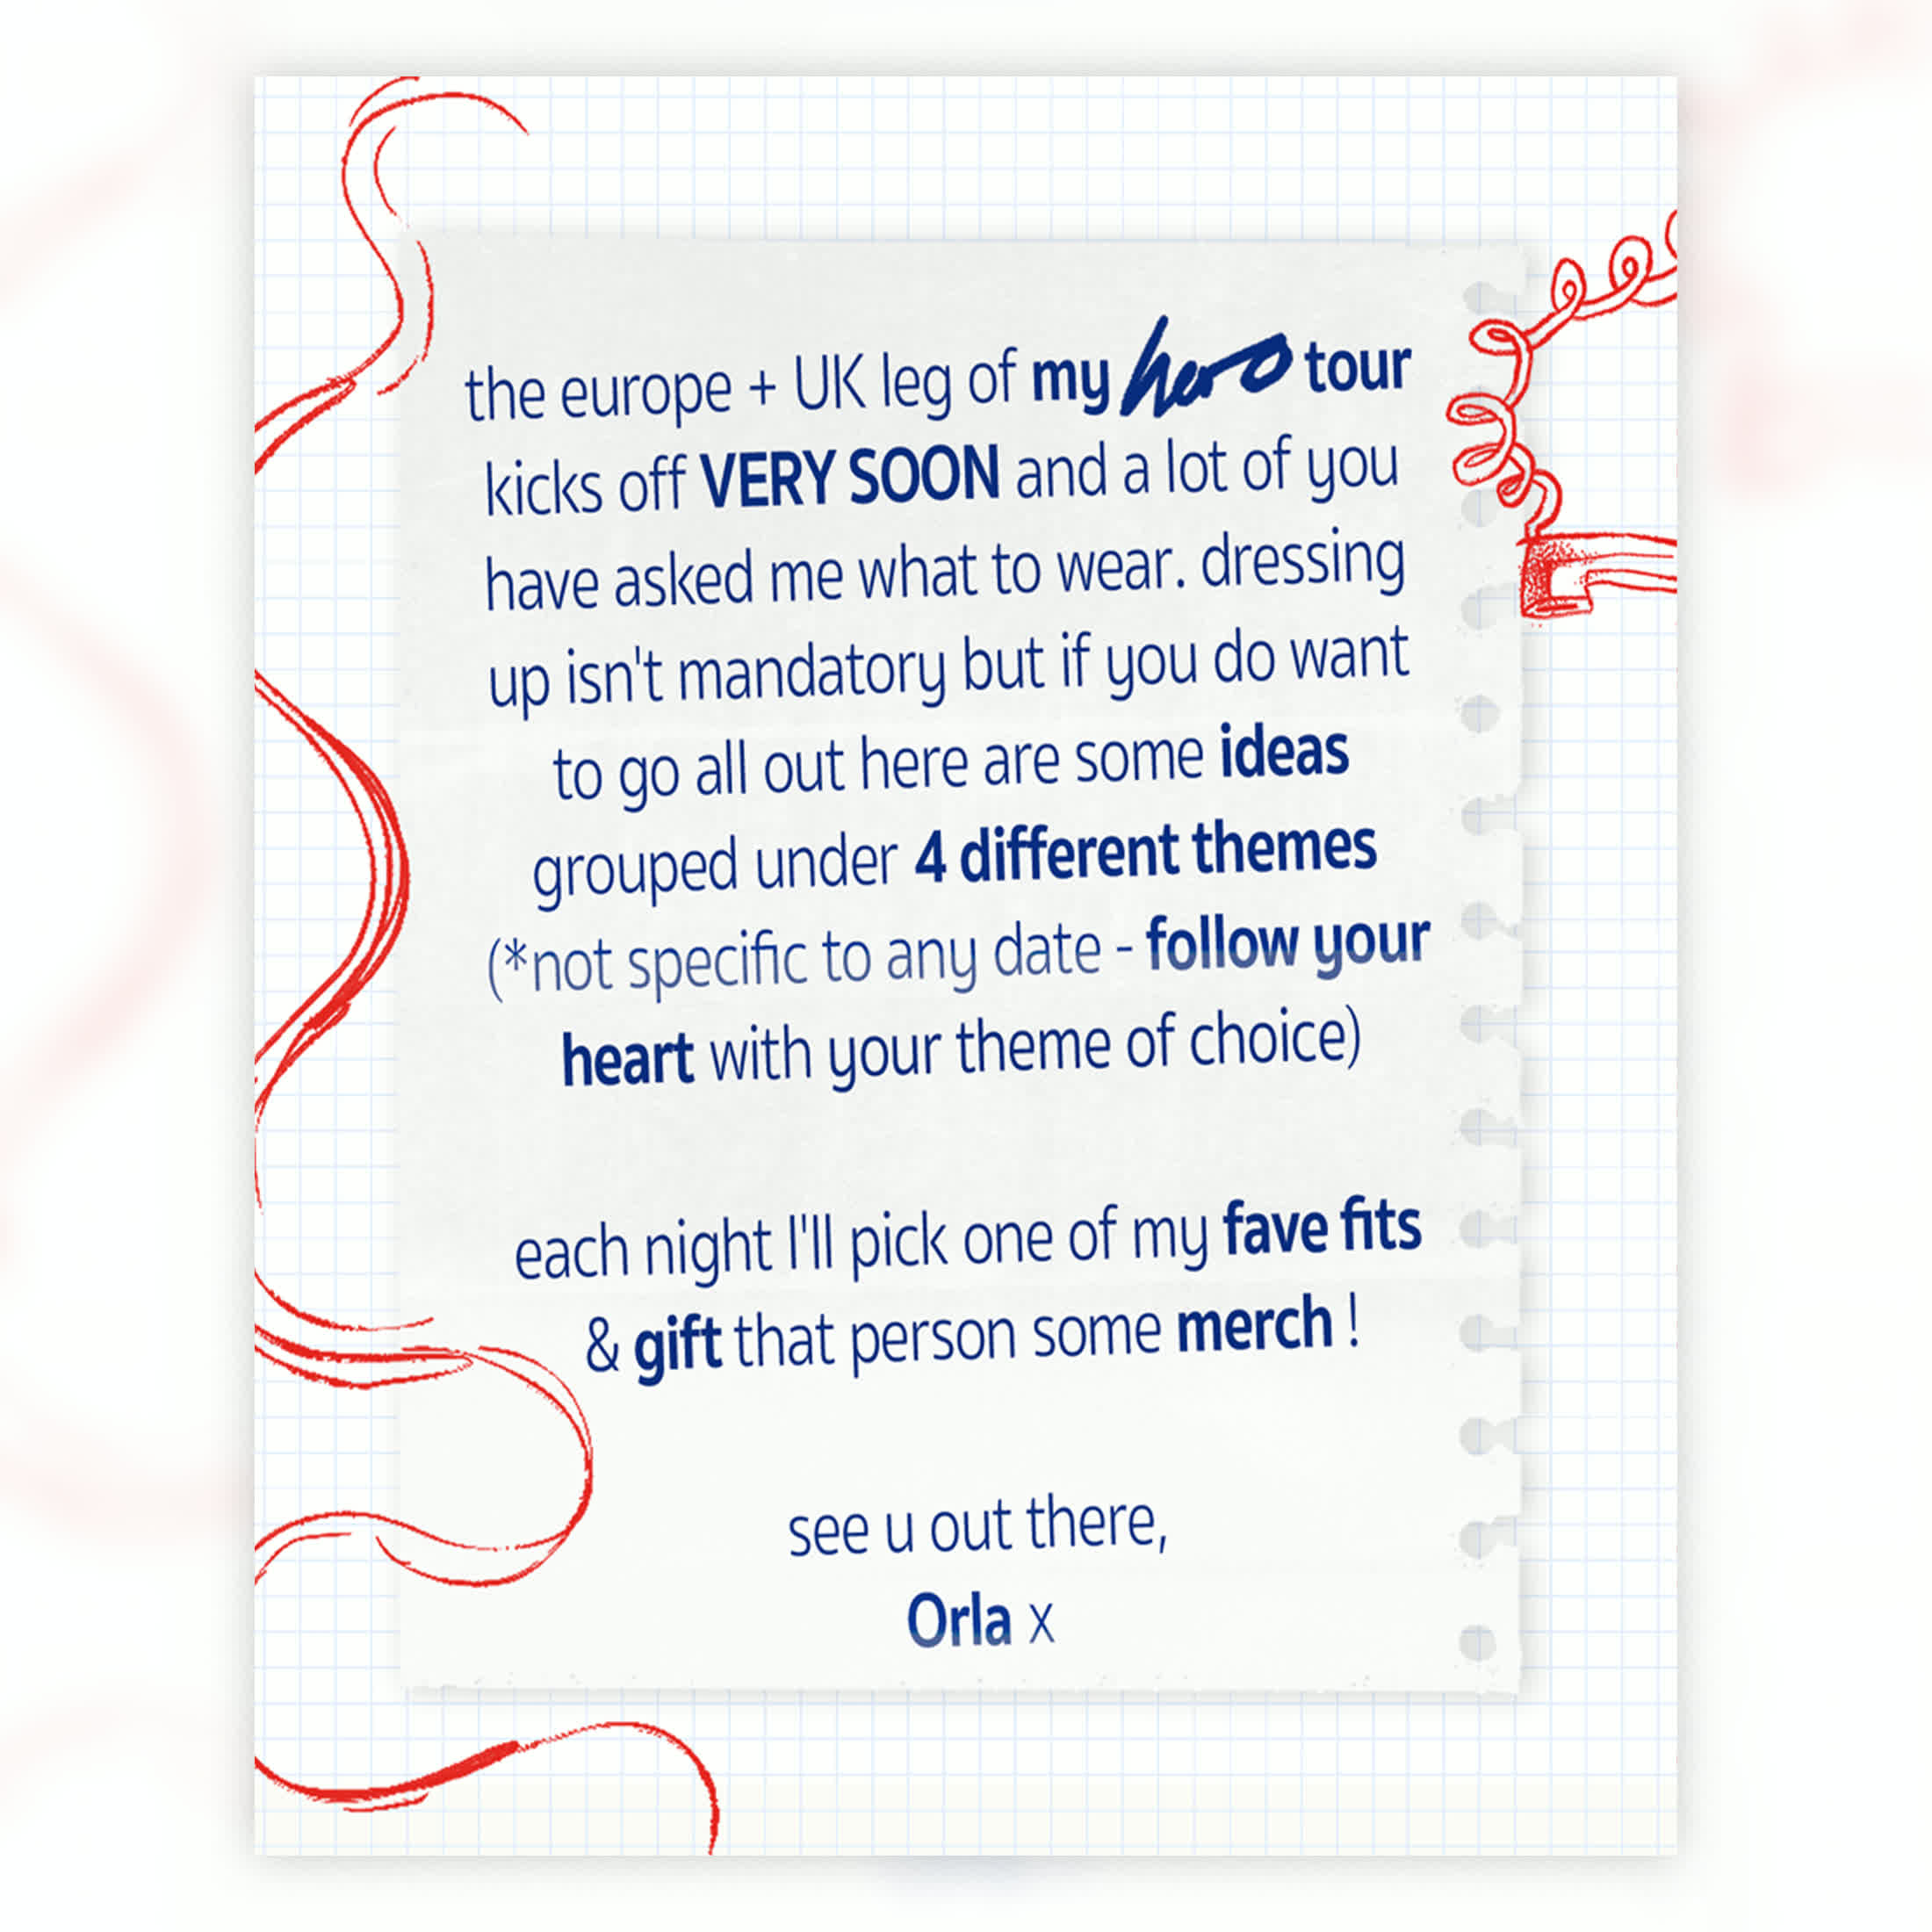 the europe + UK leg of my hero tour
kicks off VERY SOON and a lot of you
have asked me what to wear. dressing
up isn't mandatory but if you do want
to go all out here are some ideas
grouped under 4 different themes
(*not specific to any date - follow your
heart with your theme of choice)
each night I'll pick one of my fave fits
& gift that person some merch !
see u out there,
Orla x